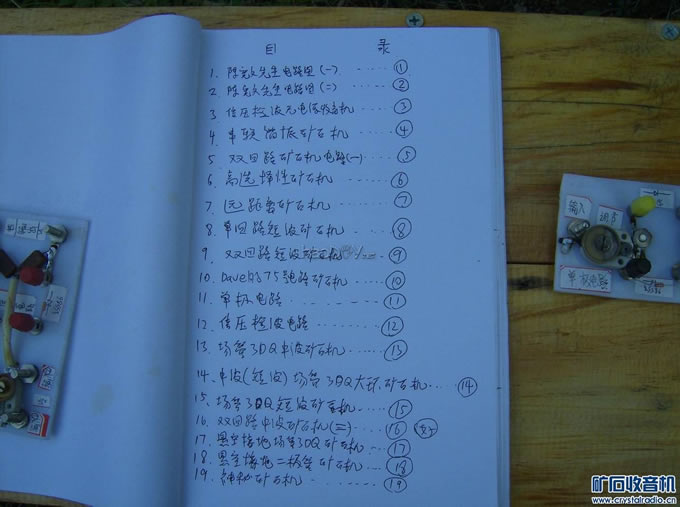 目 录
1. 陈 先生电路图(一) ‥‥‥ ①
2. 陈 先生电路图(二) ‥‥‥ ②
3. 倍压检波无电源收音机 ‥‥ ③
4. 串联谐振矿石机 ‥‥‥ ④
5. 双回路矿石机电路(一) ‥‥ ⑤
6. 高选择性矿石机 ‥‥‥ ⑥
7. 远距离矿石机 ‥‥‥ ⑦
8. 单回路短波矿石机 ‥‥‥ ⑧
9. 双回路短波矿石机 ‥‥ ⑨
10. Dave的75號路矿石机 ‥‥ ⑩
11. 单机电路 ‥‥‥‥ ⑪
12. 倍压检波电路 ‥‥‥‥ ⑫
13. 场管3DQ中波矿石机 ‥‥ ⑬
14. 中波(短波)场管3DQ大环矿石机 ‥‥ ⑭
15. 场管3DQ短波矿石机 ‥‥ ⑮
16. 双回路中波矿石机(二) ‥‥ ⑯
17. 接地场管3DQ矿石机 ‥‥ ⑰
18. 接地二极管矿石机 ‥‥ ⑱
19. 矿石机 ‥‥‥‥ ⑲
输入
调台
单机电路
矿石收音机
www.crystalradio.cn